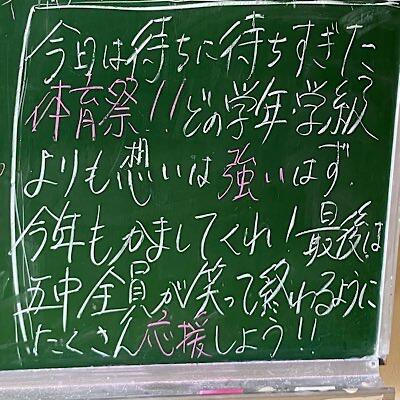 今日は待ちに待ちすぎた
体育祭!!どの学年・学級
よりも想いは強いはず.
今年もかましてくれ!最後は
五中全員が笑って終われるように
たくさん応援しよう!!